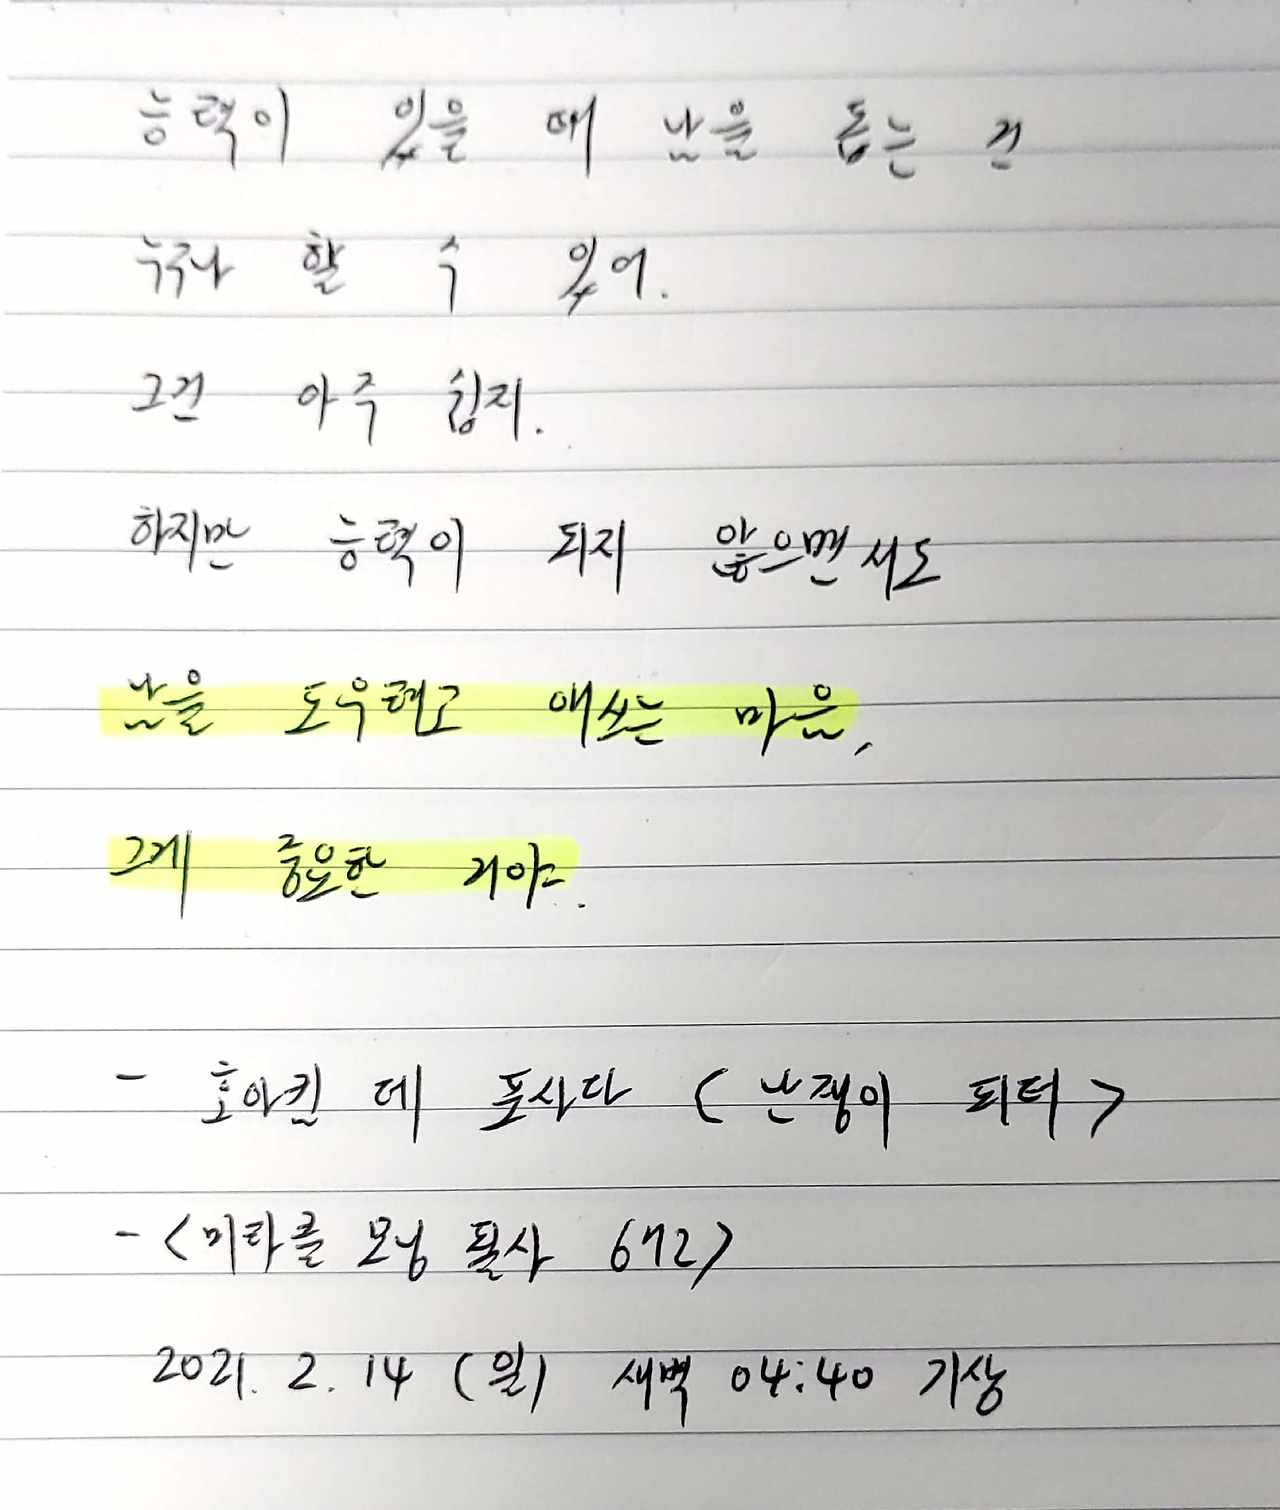 능력이 있을 때 남을 돕는 건
누구나 할 수 있어.
그건 아주 쉽지.
하지만 능력이 되지 않으면서도
남을 도우려고 애쓰는 마음,
그게 중요한 거야.
- 호아킨 데 포사다 <난쟁이 피터>
- <미라클 모닝 필사 672>
2021. 2. 14 (일) 새벽 04:40 기상